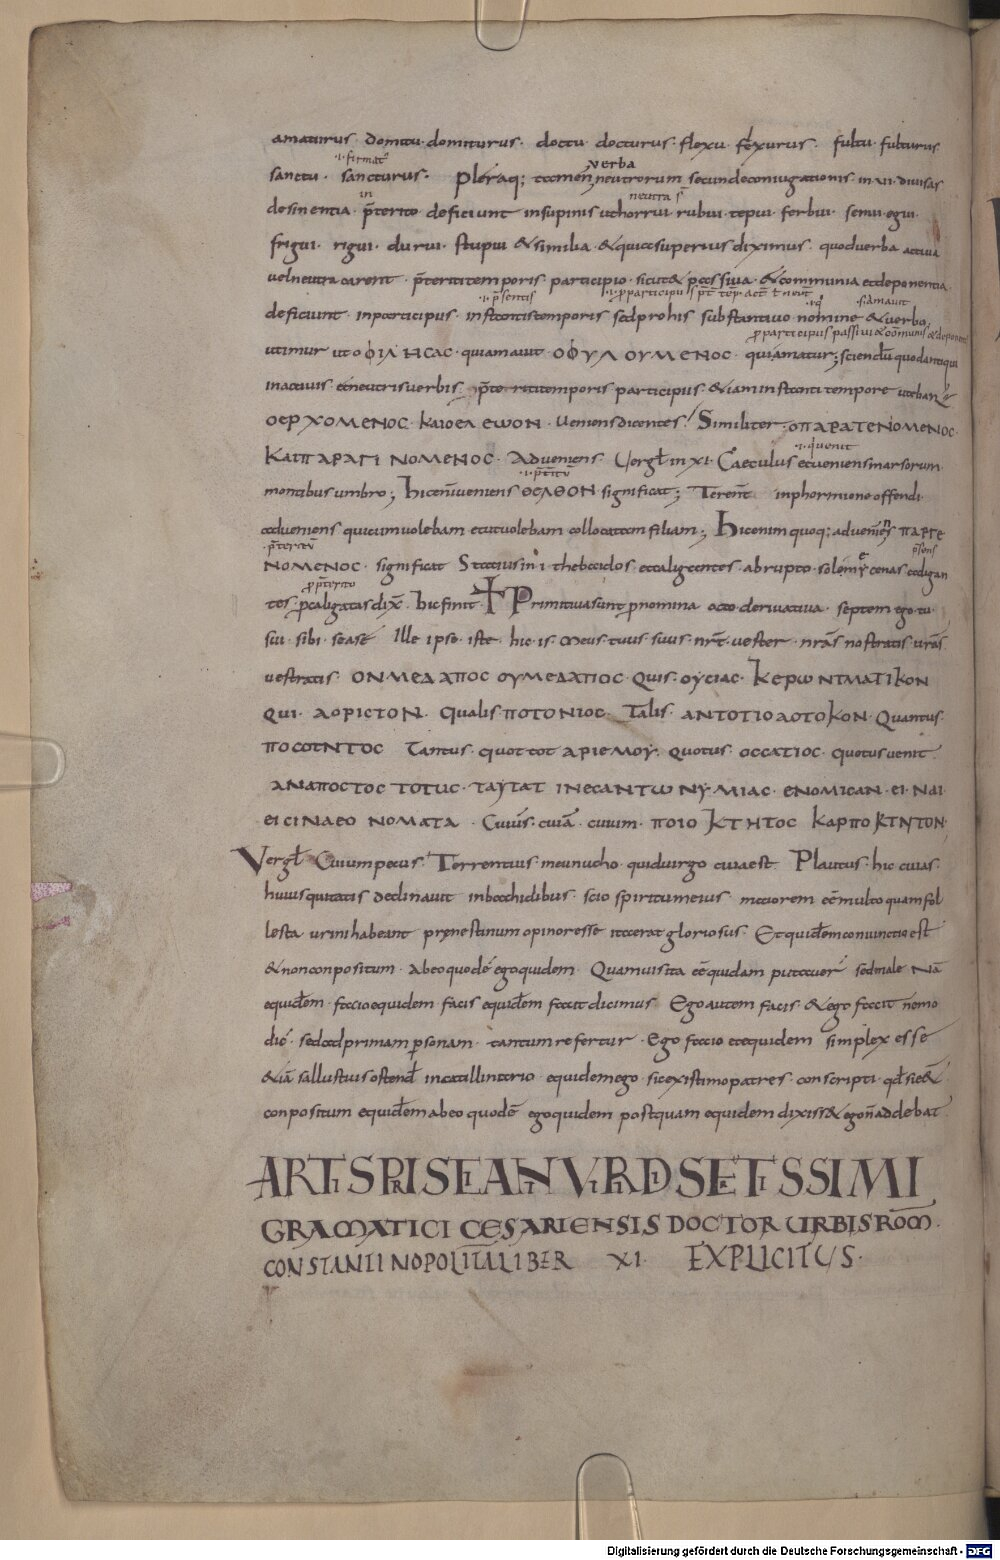 amaturus · domitu · domiturus · doctu · docturus · flexu · flexurus · fultu · fulturus
.i. firmat᷒
verba
sanctu · sancturus · pleraq; tamen neutrorum secundeconiugationis · in · ui · diuisas
in
neutra s̄
desinentia · p̄terito deficiunt insupinis uthorrui rubui · tepui · ferbui · senui · egui ·
frigui · rigui · durui · stupui & similia · & quicasuperius diximus · quoduerba actiua
uelneutra carent · p̄teriti temporis · participio · sicut & passiua · & communia etdeponentia
.i. p̄sentis
deficiunt · inparticipiis · instantistemporis sedprohis substantiuo nomine & uerbo
utimur ut ο ΦΙΛΗCΑC · quiamauit · ΟΦΥΛΟΥΜΕΝΟC · quiamatur; sciendū quodantiqui
inactiuis etneutrisuerbis p̄teritis temporis participiis · &iam instanti tempore uteban᷒
ΟΕΡΧΟΜΕΝΟC · ΚΑΙΟΕΛΕωΟΝ · ueniensdicentes Similiter · ΟΠΑΡΑΓΕΝΟΜΕΝΟC ·
ΚΑΙΠΑΡΑΓΙΝΟΜΕΝΟC · Adueniens Vergł in XI · Caeculus etueniensmarsorum
montibus umbro; hicenīueniens ΘΕΛΘΟΝ · significat; Terent̄ inphormione offendi
adueniens quicumuolebam etutuolebam collocatam filiam; hicenim quoq; adueniens ΠΑΡΓΕ
.p̄teritū
p̄sens
ΝΟΜΕΝΟC · significat Statius in · i · thebaidos · etcaligantes · abrupto · sole mycenas caligan
p̄ p̄terito
tes p̄caligatas dix̄ · hic finit Primitiua sunt p̄nomina octo · deriuatiua · septem ego · tu ·
sui · sibi · sease ille ipse · iste · hic · is · meus · tuus · suus · nr̄t · uester · nrās nostratis · urās
uestratis · ΟΝΜΕΔΑΠΟC ΟΥΜΕΔΑΠΟC · Quis · ΟΥCΙΑC · ΚΕΡωΝΤΜΑΤΙΚΟΝ
Qui · ΑΟΡΙCΤΟΝ · Qualis · ΠΟΤΟΝΙΟC · Talis · ΑΝΤΟΤΙΟΛΟΤΟΚΟΝ · Quantus
ΠΟCΟΤΝΤΟC Tantus · quot tot ΑΡΙΕΜΟΥ · Quotus · ΟCCΑΤΙΟC · quotusuenit
ΑΝΑΠΟCΤΟC ΤΟΤUC · ΤΑΥΤΑΤ ΙΝΕCΑΝΤωΝΥΜΙΑC · ΕΝΟΜΙCΑΝ · ΕΙ · ΝΑΙ
ΕΙCΙΝΑΕΟΝΟΜΑΤΑ · Cuius · cuiā · cuium · ΠΟΙΟΚΤΗΤΟC ΚΑΡΠΟΚΤΝΤΟΝ
Vergł Cuiumpecus · Terrentius · ineunucho · quiduirgo cuiaest Plautus · hic cuias ·
huiusquitatis declinauit inbacchidibus · scio spiritumeius maiorem eēmultoquamfol
lesta urinihabeant prynestinum opinoresse itaerat gloriosus · Et quidemconiunctio est
&nonconpositum · abeoquodē · egoquidem · Quamuisita eēquidam putauer̄ sedmale Nā
equidem · facioequidem facis equidem facit dicimus Ego autem facis · &ego facit nemo
dic̄ · sedadprimam p̄sonam · tantum refertur · Ego facio etequidem simplex esse
&iā sallustius ostend̄ incatillinario · equidemego · sicexistimo patres · conscripti · qd̄ sie&
conpositum equidemabeo quodē egoquidem postquam equidem dixiss& ego n̄addebat
ARTIS PRISCIANI VIRI DISERTISSIMI
GRAMATICI CESARIENSIS DOCTOR URBISROM̄ ·
CONSTANTINOPOLITALIBER XI · EXPLICITUS ·
Digitalisierung gefördert durch die Deutsche Forschungsgemeinschaft - DFG